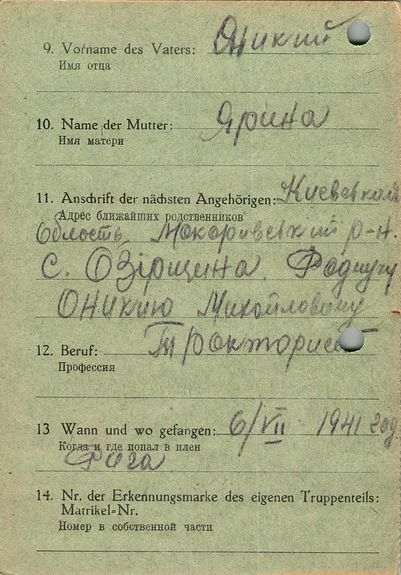 9. Vorname des Vaters: Оникий
Имя отца
10. Name der Mutter: Ярина
Имя матери
11. Anschrift der nächsten Angehörigen: Киевская
Адрес ближайших родственников
Область Макаривский р-н.
с. Озірщина
Оникию Михойловичу
12. Beruf: Тракторист
Профессия
13 Wann und wo gefangen: 6/VII 1941 год.
Когда и где попал в плен
Рига
14. Nr. der Erkennungsmarke des eigenen Truppenteils:
Matrikel-Nr.
Номер в собственной части